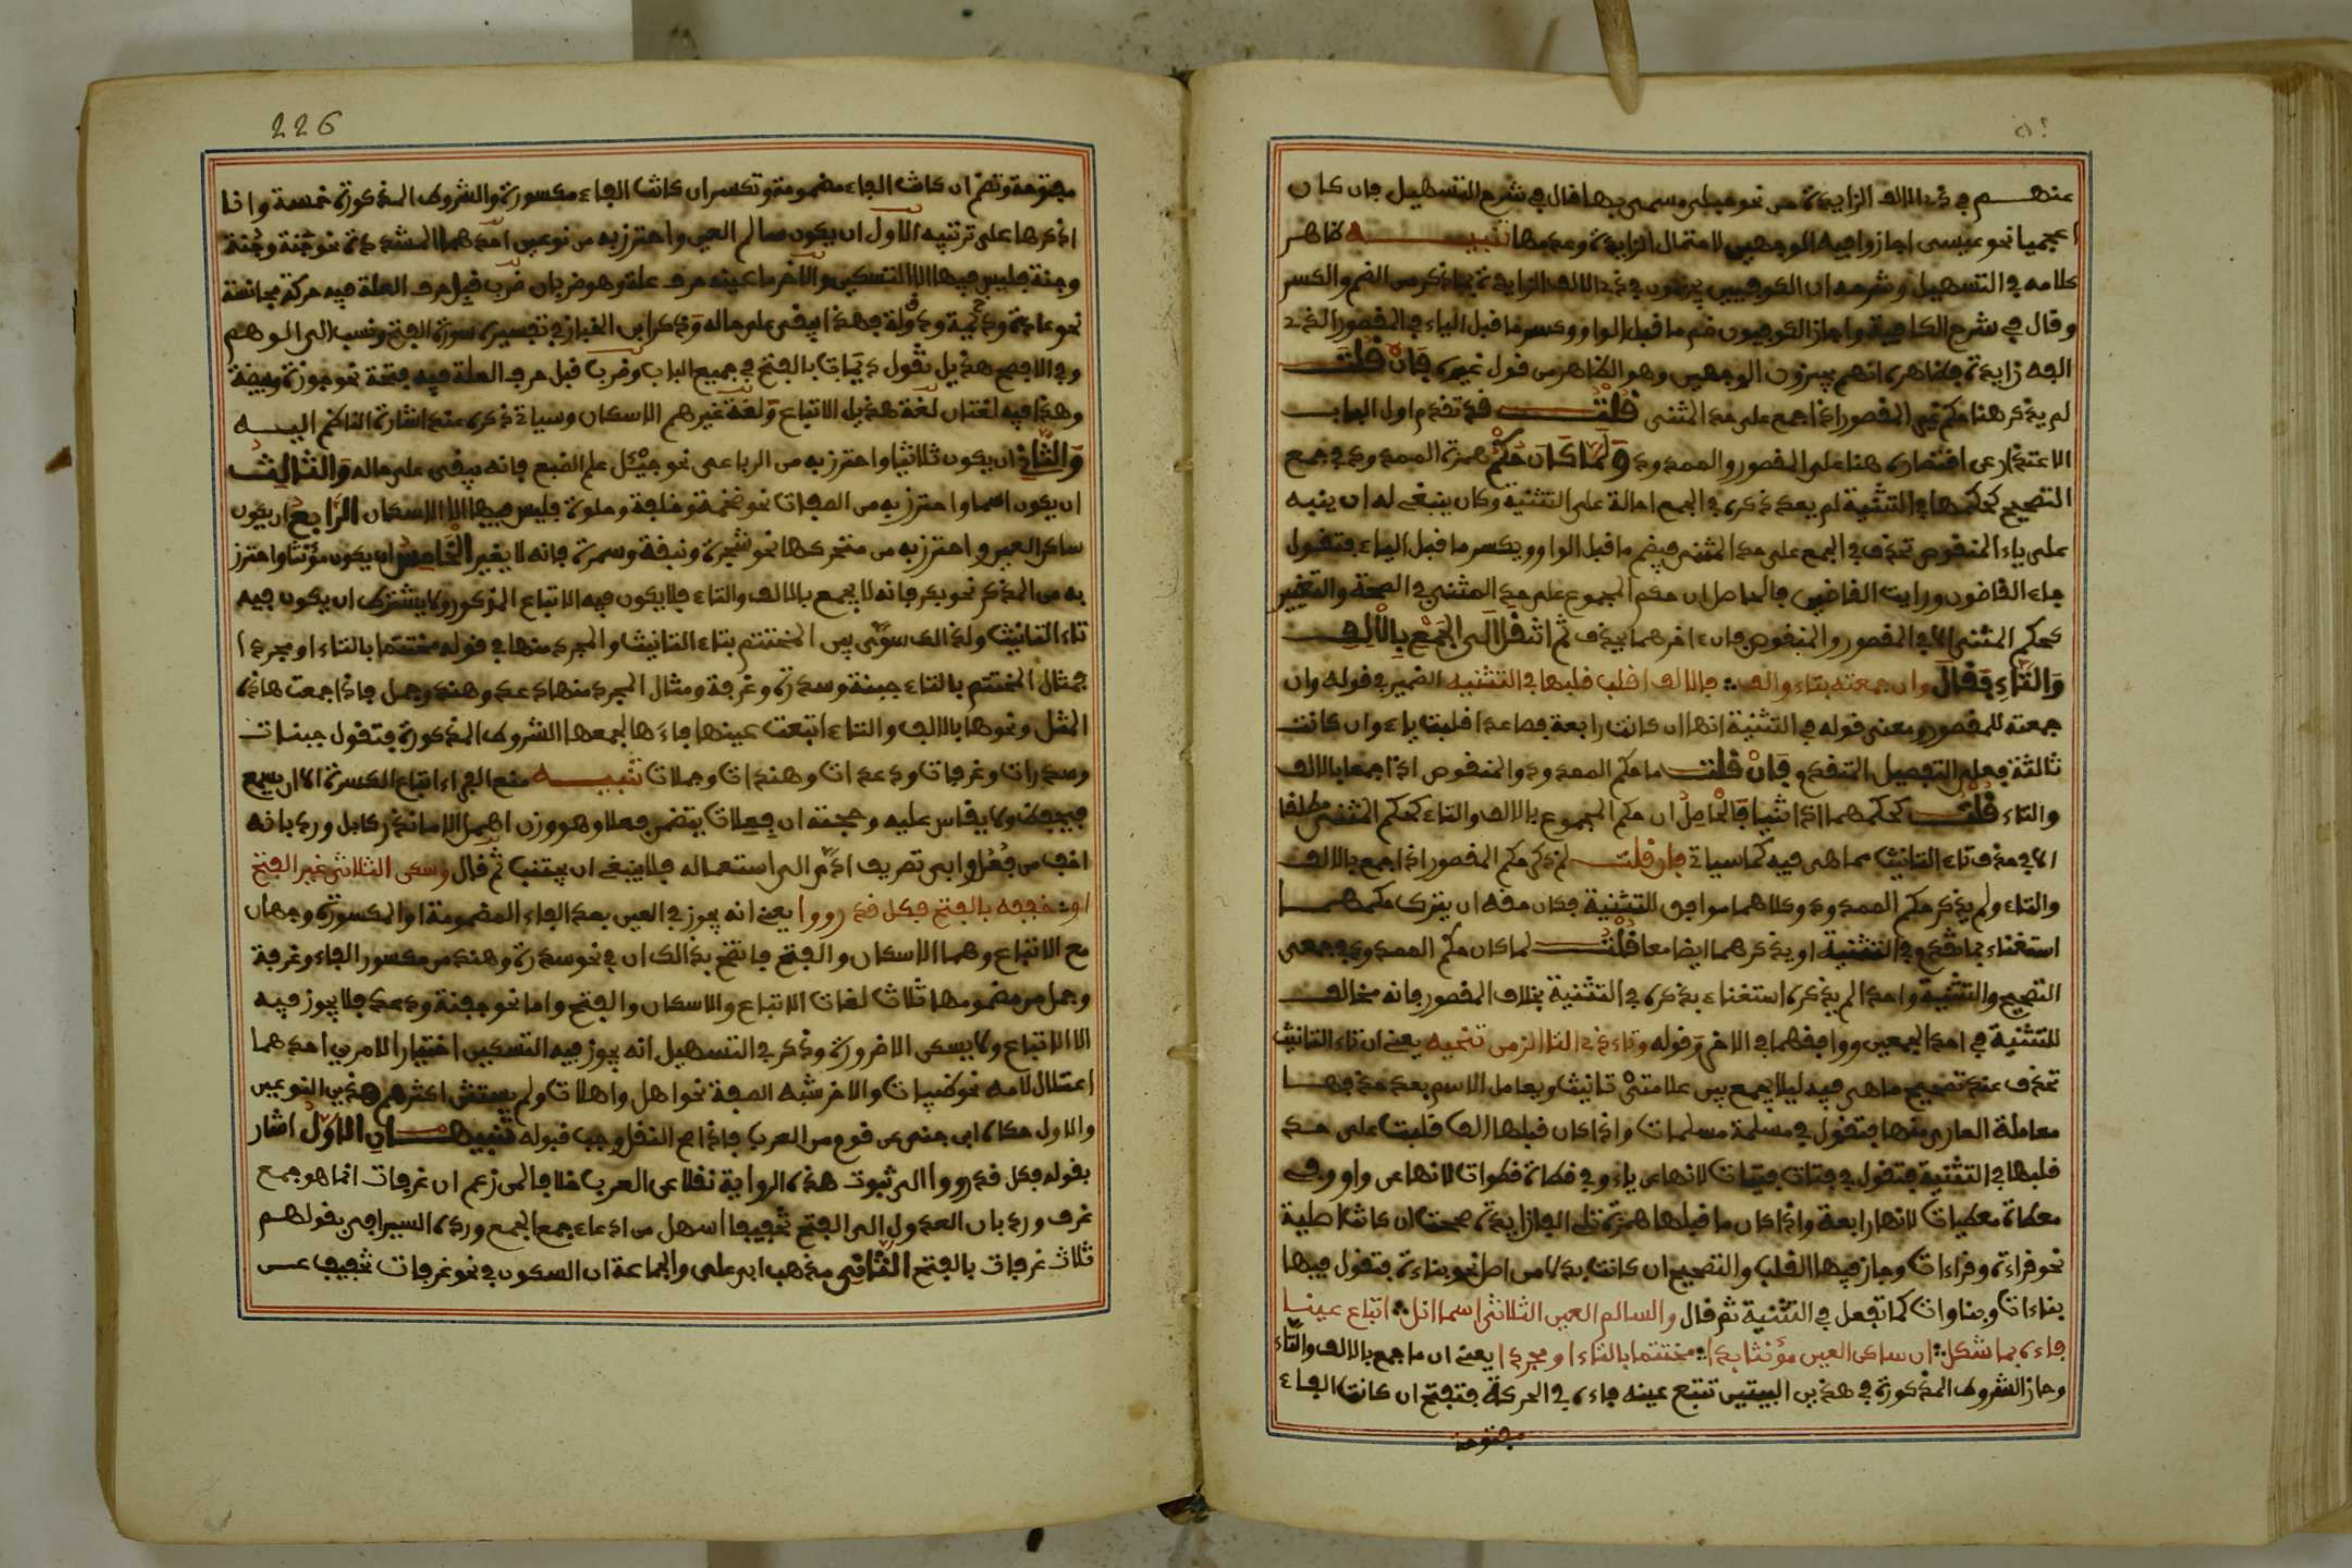 عنهم في ذي الالف الزايدة من نحو حبلى مسمى بها قال في شرح التسهيل فان كان
اعجميا نحو عيسى اجازوا فيه الوجهين لاحتمال الزيادة وعدمها تنبيه ظاهر
كلامه في التسهيل وشرحه ان الكوفيين يجيزون في ذي الالف الزايدة ما ذكر من الضم والكسر
وقال في شرح الكافية واجاز الكوفيون ضم ما قبل الواو وكسر ما قبل الياء في المقصور الذي
الفه زايدة فظاهره انهم يجيزون الوجهين وهو الظاهر من قول غيره فان قلت
لم يذكر هنا حكم غير المقصور اذا جمع على حد المثنى قلت قد تقدم اول الباب
الاعتذار عن اقتصاره هنا على المقصور والممدود ولما كان حكم همزة الممدود في جمع
التصحيح كحكمها في التثنية لم يعد ذكره في الجمع احالة على التثنية وكان ينبغي له ان ينبه
على ياء المنقوص تحذف في الجمع على حد المثنى فيضم ما قبل الواو ويكسر ما قبل الياء فتقول
جاء القاضون ورايت القاضين فالحاصل ان حكم المجموع على حد المثنى في الصحة والتغيير
كحكم المثنى الا في المقصور والمنقوص فان ءاخرهما يحذف ثم انتقل الى الجمع بالالف
والتاء فقال وان جمعته بتاء والف فالالف اقلب قلبها في التثنيه الضمير في قوله وان
جمعته للمقصور ومعنى قوله في التثنية انها ان كانت رابعة فصاعدا قلبت ياء وان كانت
ثالثة فعلى التفصيل المتقدم فان قلت ما حكم الممدود والمنقوص اذا جمعا بالالف
والتاء قلت كحكمهما اذا ثنيا فالحاصل ان حكم المجموع بالالف والتاء كحكم المثنى مطلقا
الا في حذف تاء التانيث مما هي فيه كما سياتي فان قلت لم ذكر حكم المقصور اذا جمع بالالف
والتاء ولم يذكر حكم الممدود وكلاهما موافق للتثنية فكان حقه ان يترك حكمهما
استغناء بما ذكره في التثنية او يذكرهما ايضا معا قلت لما كان حكم الممدود في جمعي
التصحيح والتثنية واحدا لم يذكره استغناء بذكره في التثنية بخلاف المقصور فانه مخالف
للتثنية في احد الجمعين ووافقهما في الاخر وقوله وتاء ذي التا الزمن تنحيه يعني ان تاء التانيث
تحذف عند تصحيح ما هي فيه ليلا يجمع بين علامتي تانيث ويعامل الاسم بعد حذفها
معاملة العاري منها فتقول في مسلمة مسلمات واذا كان قبلها الف قلبت على حد
قلبها في التثنية فتقول في فتات فتيات لانها عن ياء وفي قطاة قطوات لانها عن واو وفي
معطاة معطيات لانها رابعة واذا كان ما قبلها همزة تلي الفا زايدة صححت ان كانت اصلية
نحو قراءة وقراءات وجاز فيها القلب والتصحيح ان كانت بدلا من اصل نحو بناءة فتقول فيها
بناءات وبناوات كما تفعل في التثنية ثم قال والسالم العين الثلاثي اسما انل اتباع عينا
فاءه بما شكل ان ساكن العين مؤنثا بدا مختتما بالتاء او مجردا يعني ان ما جمع بالالف والتاء
وحاز الشروط المذكورة في هذين البيتين تتبع عينه فاءه في الحركة فتفتح ان كانت الفاء
مفتوحة
226
مفتوحة وتضم ان كانت الفاء مضمومة وتكسر ان كانت الفاء مكسورة والشروط المذكورة خمسة وانا
اذكرها على ترتيبه الاول ان يكون سالم العين واحترز به من نوعين احدهما المشدد نحو جَنة وجِنة
وجنة فليس فيها الا التسكين والاخر ما عينه حرف علة وهو ضربان ضرب قبل حرف العلة فيه حركة مجانسة
نحو عادة وديمة ودولة فهذا يبقى على حاله وذكر ابن الخباز في تفسير سورة الفتح ونسب الى الوهم
وفي الافصح هذيل تقول ديمات بالفتح في جميع الباب وضرب قبل حرف العلة فيه فتحة نحو جوزة وبيضة
وهذا فيه لغتان لغة هذيل الاتباع ولغة غيرهم الاسكان وسياتي ذكره عند اشارة الناظم اليه
والثاني ان يكون ثلاثيا واحترز به من الرباعي نحو جيئل علم الضبع فانه يبقى على حاله والثالث
ان يكون اسما واحترز به من الصفات نحو ضخمة وجلفة وحلوة فليس فيها الا الاسكان الرابع ان يكون
ساكن العين واحترز به من متحركها نحو شجرة ونبقة وسمرة فانه لا يغير الخامس ان يكون مؤنثا واحترز
به من المذكر نحو بكر فانه لا يجمع بالالف والتاء فلا يكون فيه الاتباع المذكور ولا يشترط ان يكون فيه
تاء التانيث ولذالك سوى بين المختتم بتاء التانيث والمجرد منها في قوله مختتما بالتاء او مجردا
فمثال المختتم بالتاء جفنة وسدرة وغرفة ومثال المجرد منها دعد وهند وجمل فاذا جمعت هاذه
المثل ونحوها بالالف والتاء اتبعت عينها فاءها لجمعها الشروط المذكورة فتقول جفنات
وسدرات وغرفات ودعدات وهندات وجملات تنبيه منع الفراء اتباع الكسرة الا ان يسمع
فيحفظ ولا يقاس عليه وحجته ان فعلات يتضمن فعلا وهو وزن اهمل الا ما ندر كابل ورد بانه
اخف من فُعُل وابى تصريف ادى الى استعماله فلا ينبغي ان يجتنب ثم قال وسكن الثلاثي غير الفتح
او خففه بالفتح فكلا قد رووا يعني انه يجوز في العين بعد الفاء المضمومة او المكسورة وجهان
مع الاتباع وهما الاسكان والفتح فاتضح بذالك ان في نحو سدرة وهند من مكسور الفاء وغرفة
وجمل من مضمومها ثلاث لغات الاتباع والاسكان والفتح واما نحو جفنة ودعد فلا يجوز فيه
الا الاتباع ولا يسكن الا ضرورة وذكر في التسهيل انه يجوز فيه التسكين اختيارا لامرين احدهما
اعتلال لامه نحو ظبيات والاخر شبه الصفة نحو اهل واهلات ولم يستثن اكثرهم هذين النوعين
والاول حكاه ابن جني عن قوم من العرب فاذا صح النقل وجب قبوله تنبيهان الاول اشار
بقوله فكلا قد رووا الى ثبوت هذه الرواية نقلا عن العرب خلافا لمن زعم ان غرفات انما هو جمع
غرف ورد بان العدول الى الفتح تخفيفا اسهل من ادعاء جمع الجمع ورده السيرافي بقولهم
ثلاث غرفات بالفتح الثاني مذهب ابي علي والجماعة ان السكون في نحو غرفات تخفيف عن